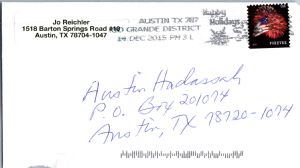 Jo Reichler
1518 Barton Springs Road #10
Austin, TX 78704-1047
AUSTIN TX 787
RIO GRANDE DISTRICT
14 DEC 2015 PM 3 L
Happy
Holidays
FOREVER
Austin Hadassah
P.O. Box 201074
Austin, TX 78720-1074